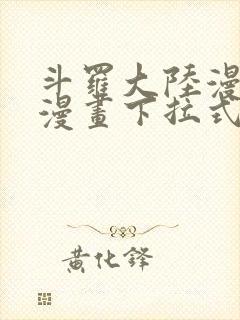 斗羅大陸漫
漫畫下拉式
黃化鋒